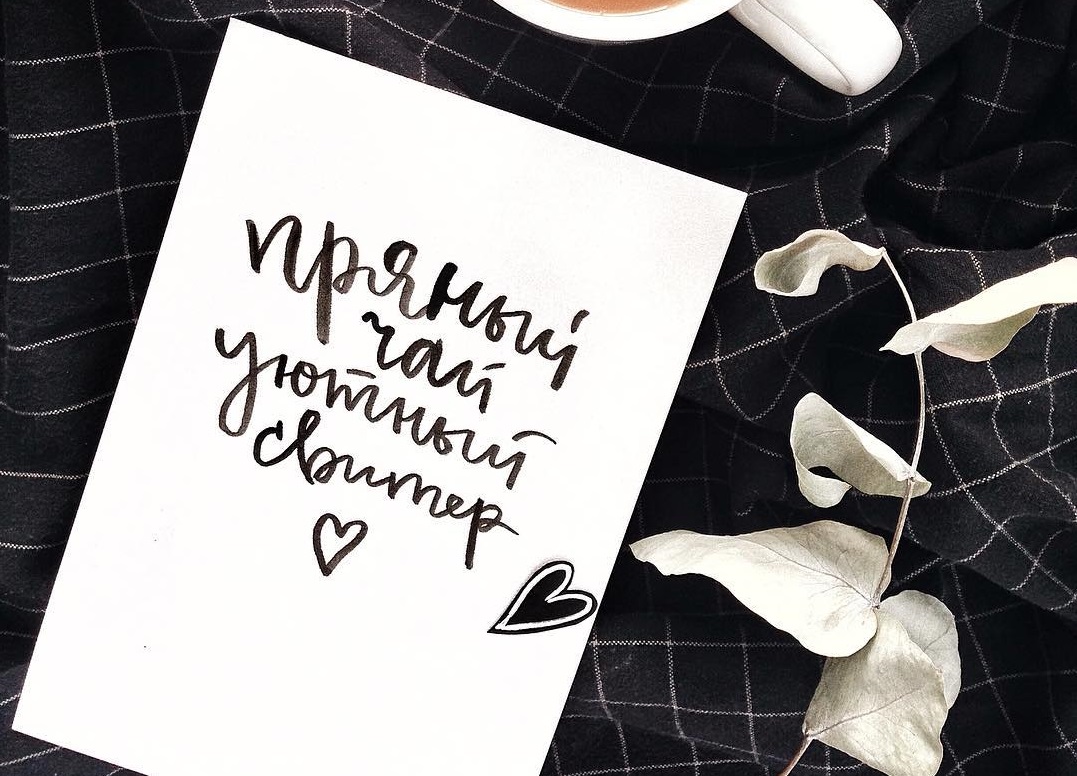 пряный
чай
уютный
свитер